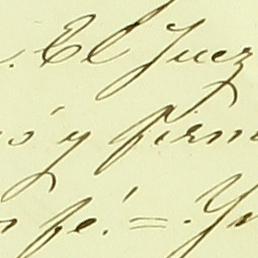 . El Juez
ó y firm
fé. =. Yo